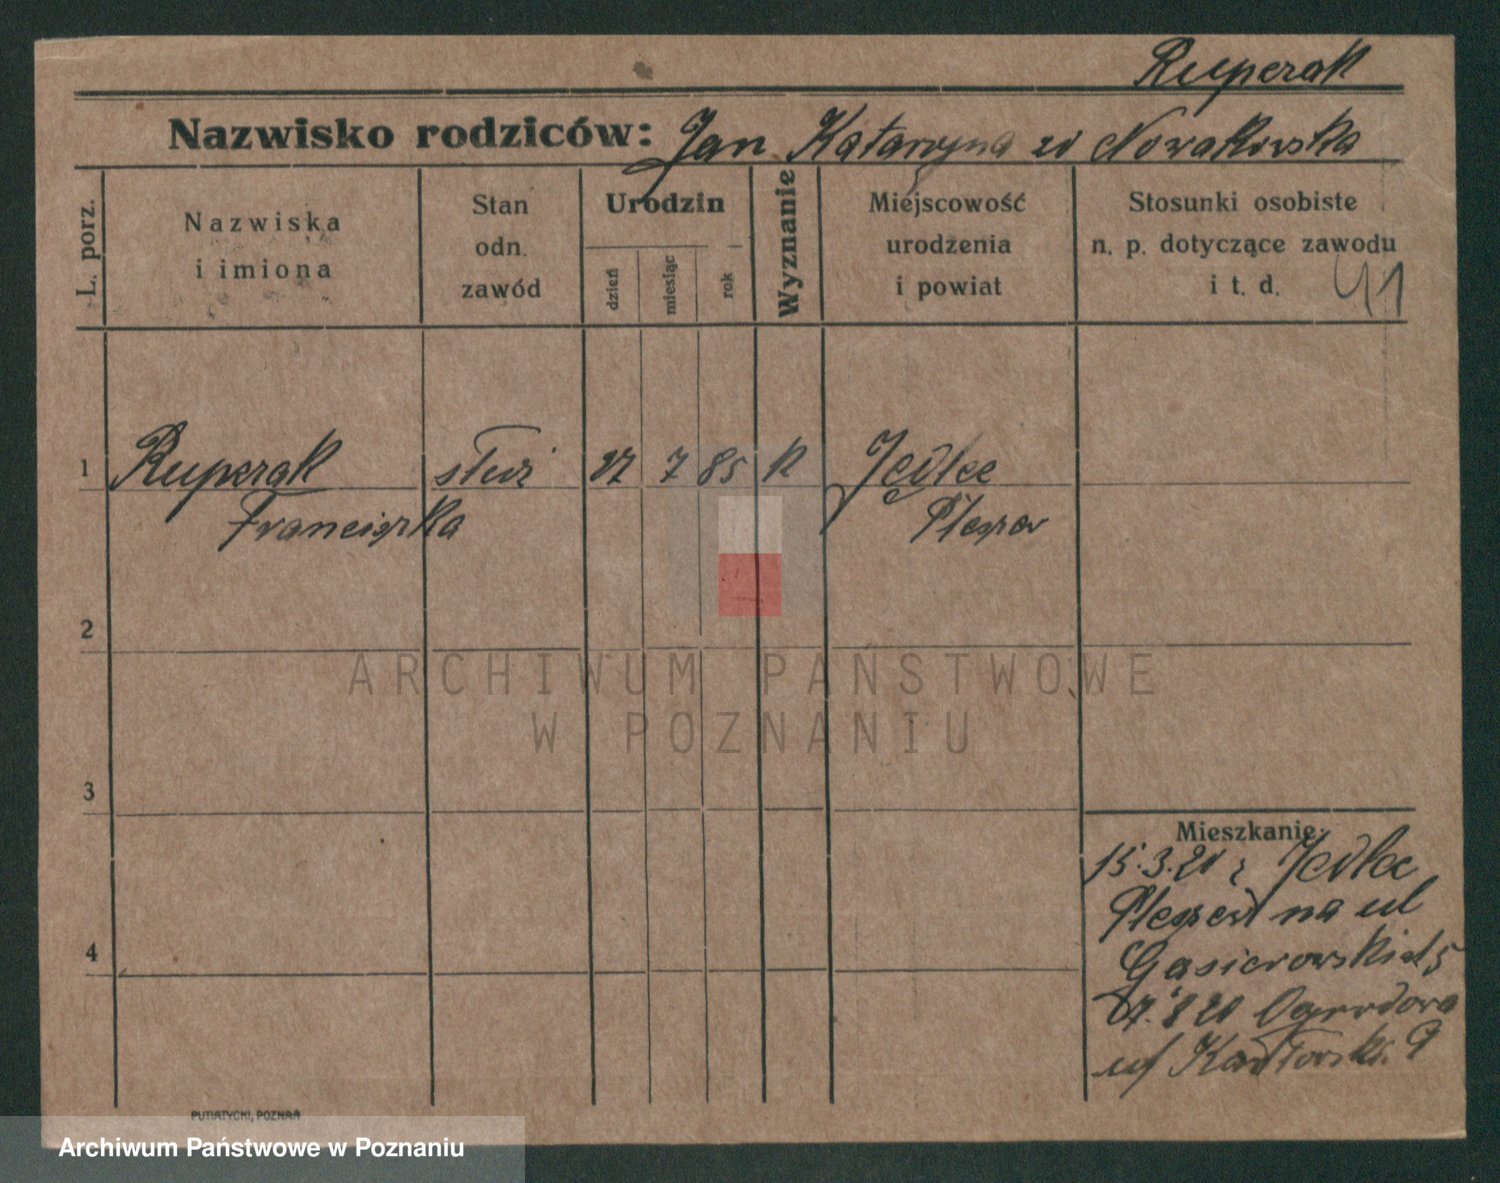 Ruperak
Nazwisko rodziców: Jan Katarzyna zd Nowakowska
L. porz.
Nazwiska
i imiona
Stan
odn.
zawód
Urodzin
dzień
miesiąc
rok
Wyznanie
Miejscowość
urodzenia
i powiat
Stosunki osobiste
n. p. dotyczące zawodu
i t. d.
41
1 Ruperak służ 7 85 k Jedlec
Franciszka Pleszew
2
3
4
Mieszkanie:
15.3.21 z Jedlec
Pleszew na ul
Gąsiorowskich 5
Ogrodowa
PUTIATYCKI, POZNAŃ
ARCHIWUM PAŃSTWOWE
W POZNANIU
Archiwum Państwowe w Poznaniu